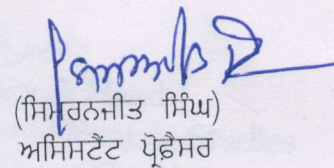 (ਸਿਮਰਨਜੀਤ ਸਿੰਘ)
ਅਸਿਸਟੈਂਟ ਪ੍ਰੋਫੈਸਰ